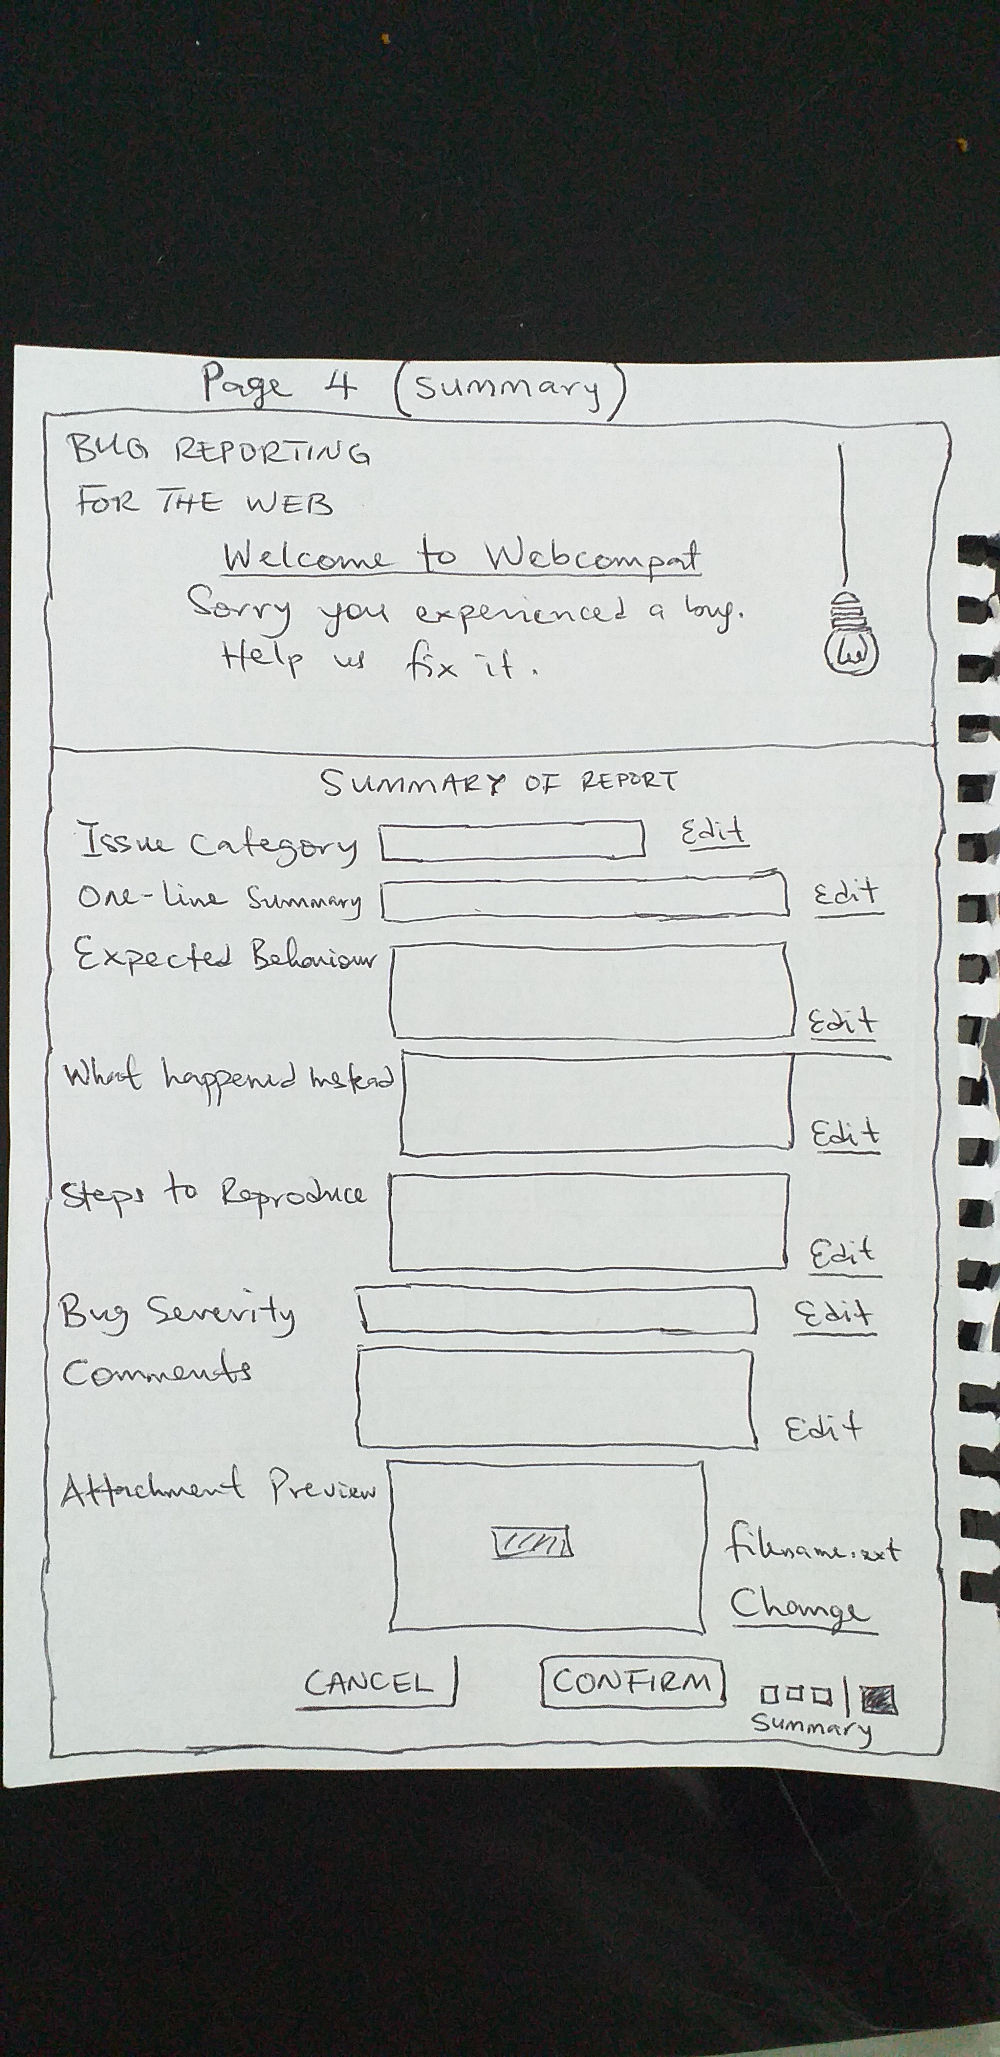 Page 4 (Summary)
BUG REPORTING
FOR THE WEB
Welcome to Webcompat
Sorry you experienced a bug.
Help us fix it.
SUMMARY OF REPORT
Issue Category Edit
One-line Summary Edit
Expected Behaviour
Edit
What happened instead
Edit
Steps to Reproduce
Edit
Bug Severity Edit
Comments
Edit
Attachment Preview
filename.ext
Change
CANCEL CONFIRM
Summary